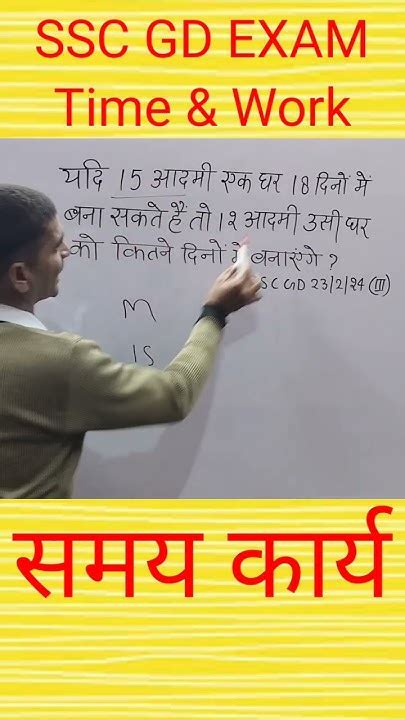 SSC GD EXAM
Time & Work
यदि 15 आदमी एक घर 18 दिनों में
बना सकते हैं तो 12 आदमी उसी घर
को कितने दिनों में बनाएंगे ?
SC GD 23/2/24 (III)
M
15
समय कार्य